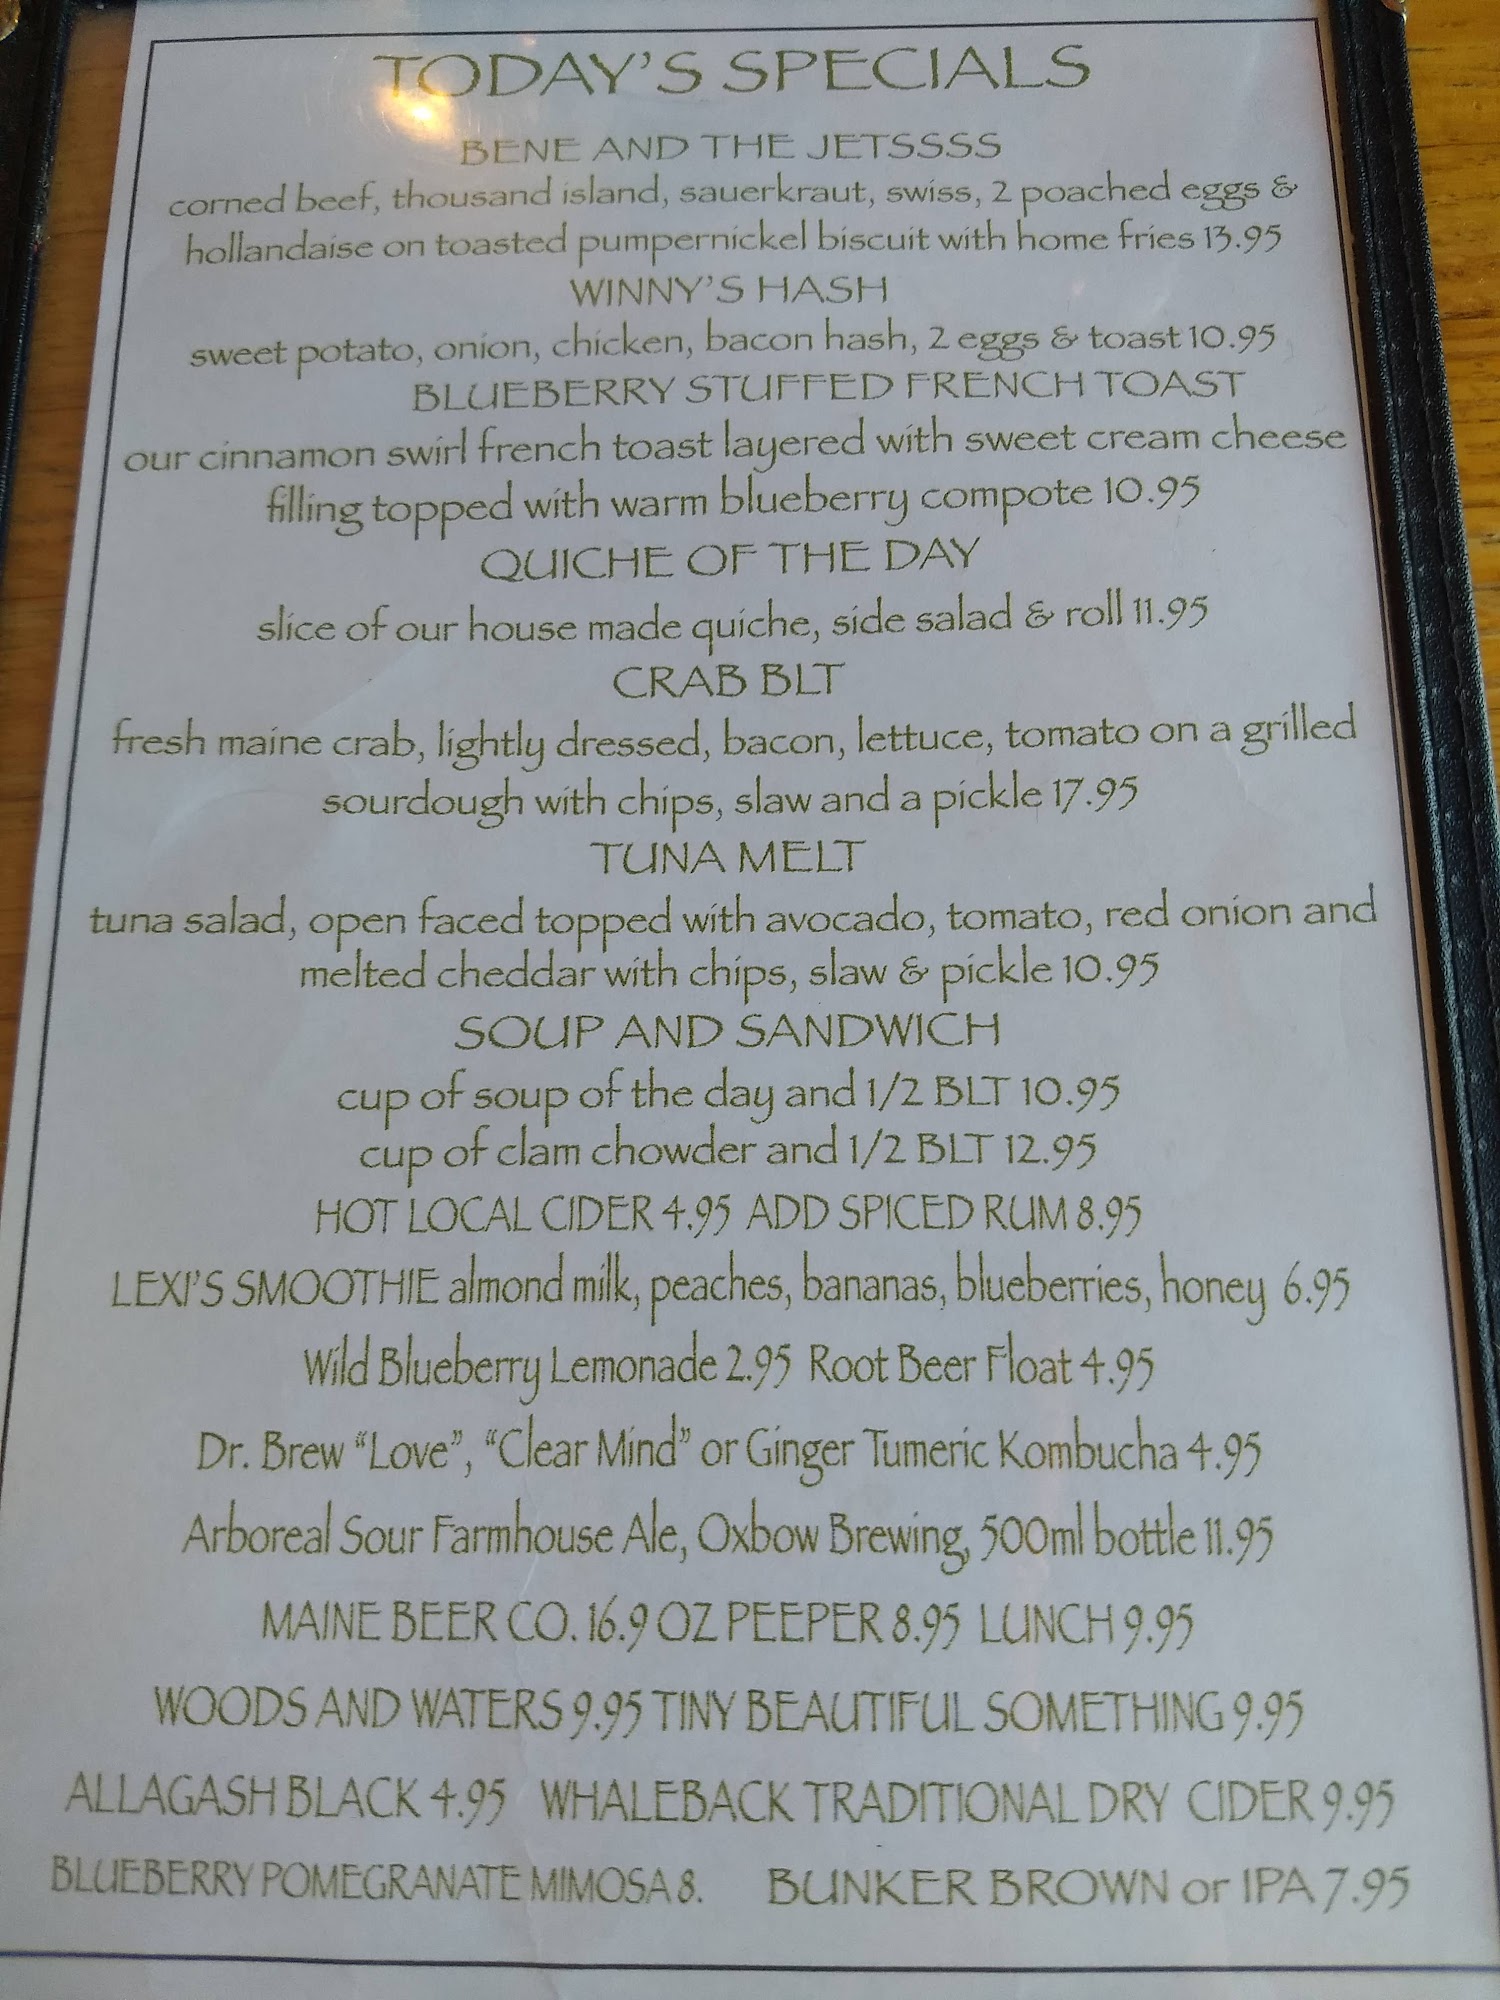 TODAY'S SPECIALS
BENE AND THE JETSSSS
corned beef, thousand island, sauerkraut, swiss, 2 poached eggs &
hollandaise on toasted pumpernickel biscuit with home fries 13.95
WINNY'S HASH
sweet potato, onion, chicken, bacon hash, 2 eggs & toast 10.95
BLUEBERRY STUFFED FRENCH TOAST
our cinnamon swirl french toast layered with sweet cream cheese
filling topped with warm blueberry compote 10.95
QUICHE OF THE DAY
slice of our house made quiche, side salad & roll 11.95
CRAB BLT
fresh maine crab, lightly dressed, bacon, lettuce, tomato on a grilled
sourdough with chips, slaw and a pickle 17.95
TUNA MELT
tuna salad, open faced topped with avocado, tomato, red onion and
melted cheddar with chips, slaw & pickle 10.95
SOUP AND SANDWICH
cup of soup of the day and 1/2 BLT 10.95
cup of clam chowder and 1/2 BLT 12.95
HOT LOCAL CIDER 4.95 ADD SPICED RUM 8.95
LEXI'S SMOOTHIE almond milk, peaches, bananas, blueberries, honey 6.95
Wild Blueberry Lemonade 2.95 Root Beer Float 4.95
Dr. Brew “Love”, “Clear Mind” or Ginger Tumeric Kombucha 4.95
Arboreal Sour Farmhouse Ale, Oxbow Brewing, 500ml bottle 11.95
MAINE BEER CO. 16.9 OZ PEEPER 8.95 LUNCH 9.95
WOODS AND WATERS 9.95 TINY BEAUTIFUL SOMETHING 9.95
ALLAGASH BLACK 4.95 WHALEBACK TRADITIONAL DRY CIDER 9.95
BLUEBERRY POMEGRANATE MIMOSA 8. BUNKER BROWN or IPA 7.95